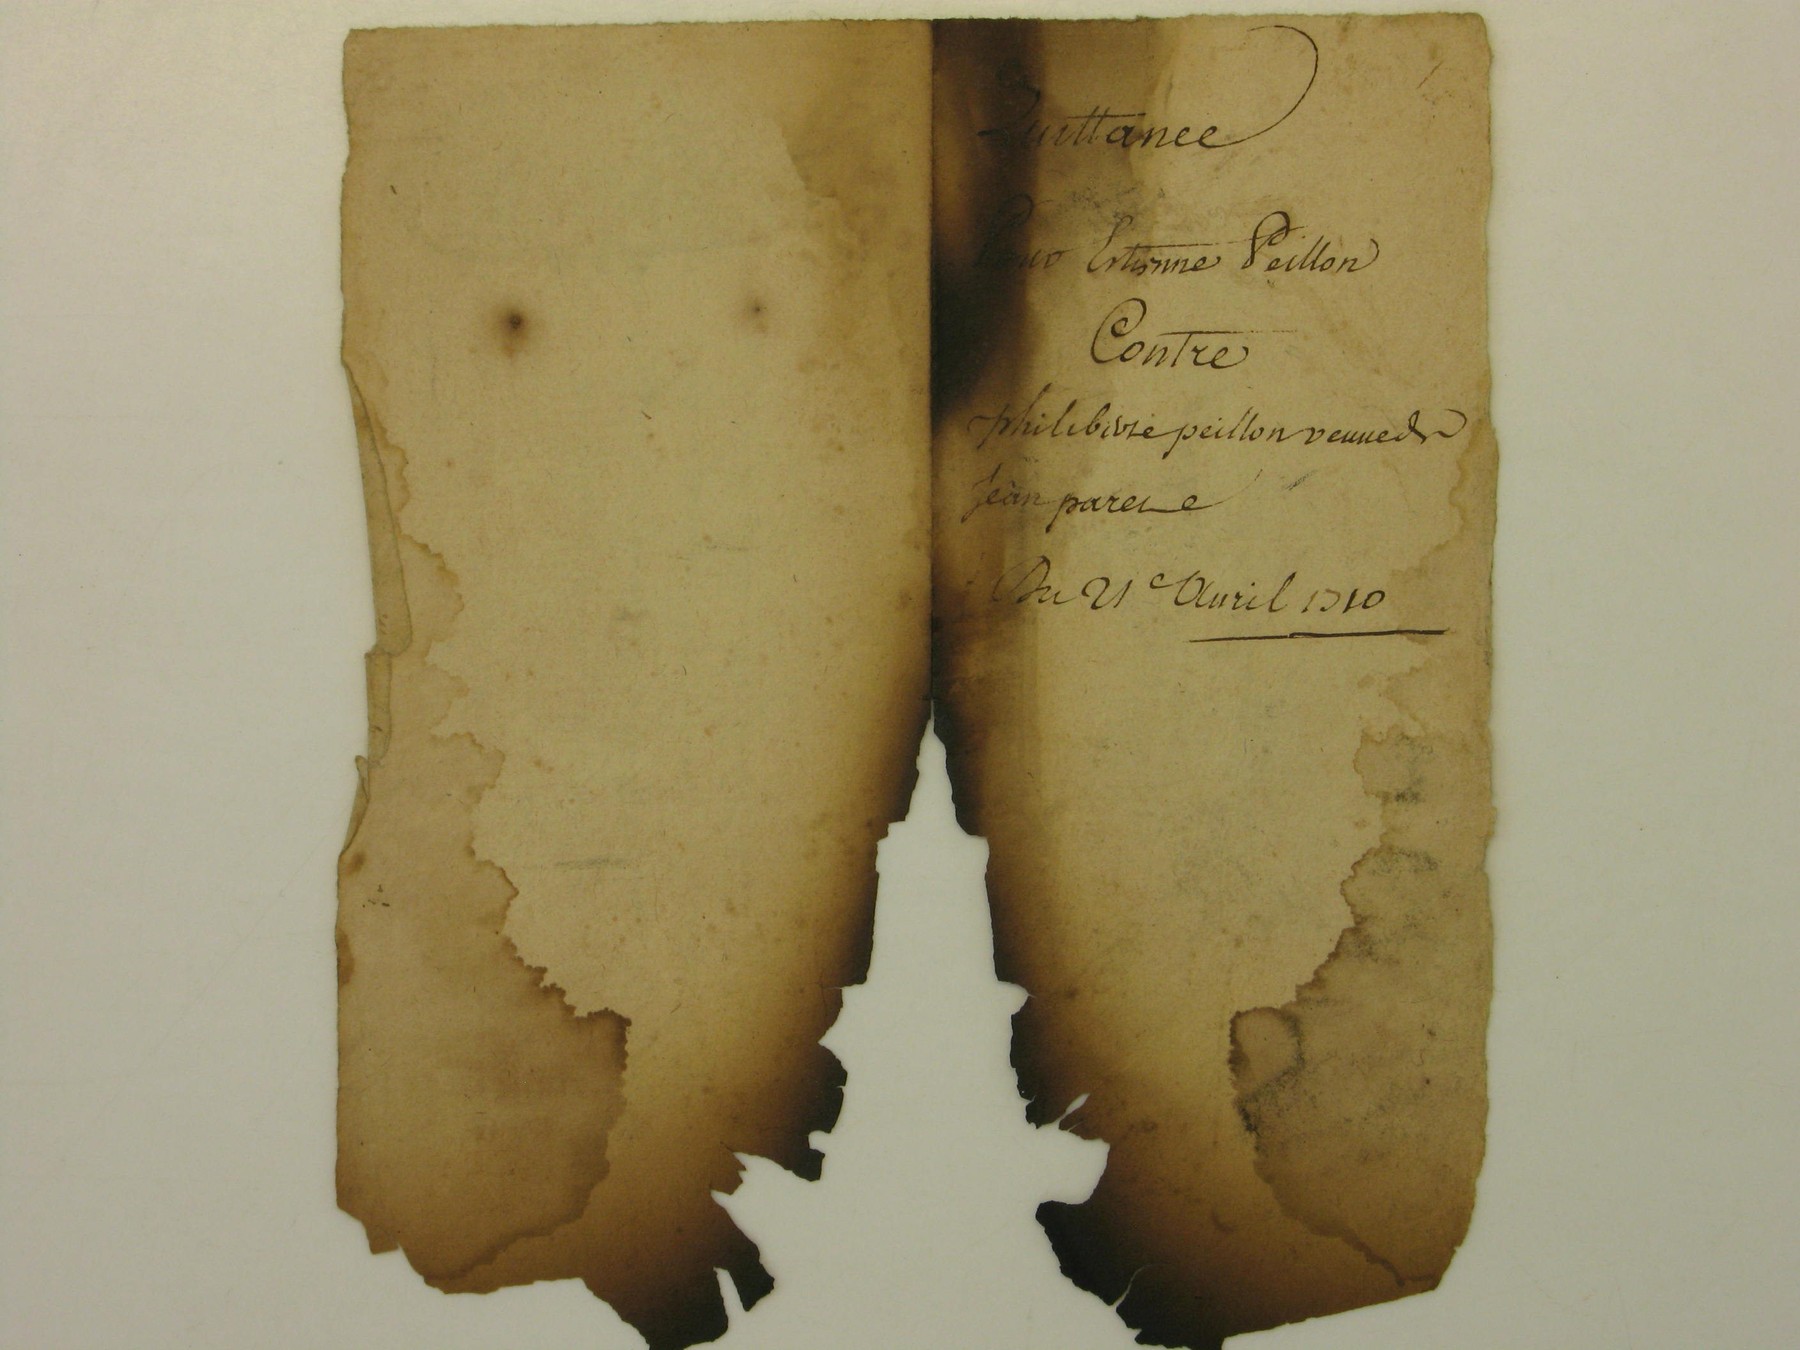 Quittance
Pour Estienne Peillon
Contre
philiberte peillon veuue de
Jean
Du 21e Auril 1710